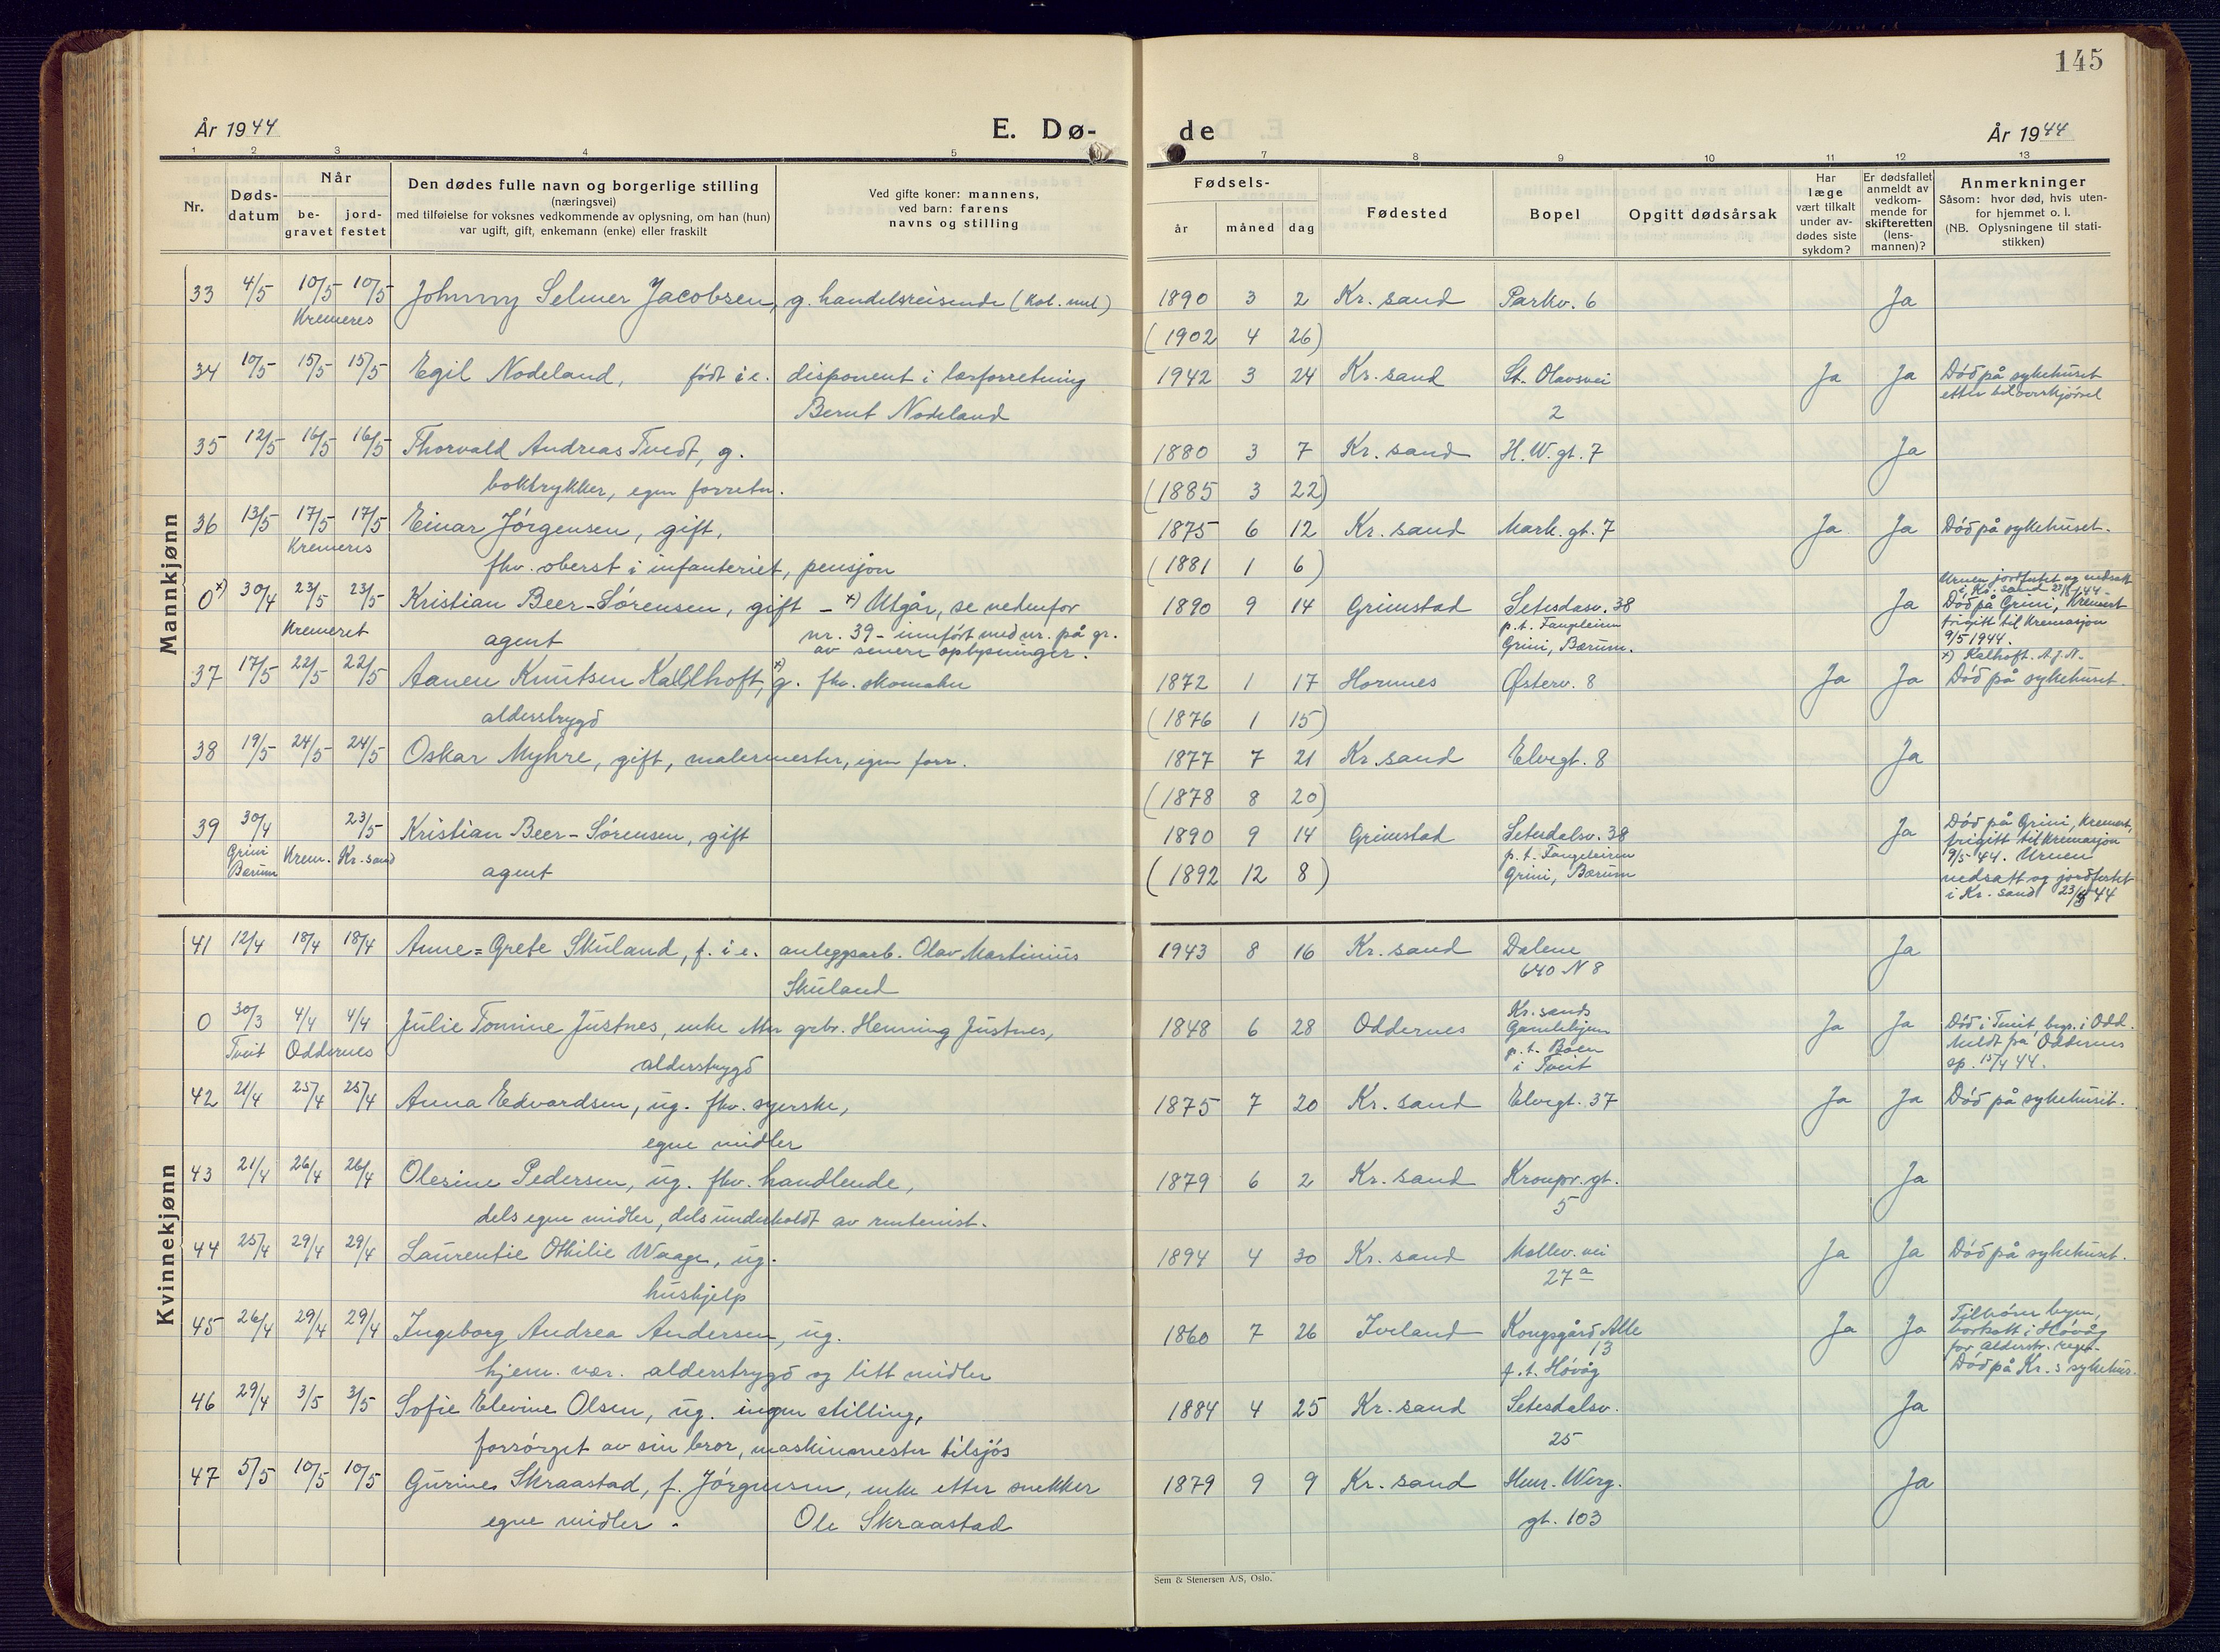 145
År 1944 E. Dø- de År 1944
1 2 3 4 5 7 8 9 10 11 12 13
Nr. Døds-datum Når be-gravet jord-festet
Den dødes fulle navn og borgerlige stilling
(næringsvei)
med tilføielse for voksnes vedkommende av oplysning, om han (hun)
var ugift, gift, enkemann (enke) eller fraskilt
Ved gifte koner: mannens,
ved barn: farens
navns og stilling
Fødsels- år måned dag
Fødested
Bopel
Opgitt dødsårsak
Har læge vært tilkalt under av-dødes siste sykdom?
Er dødsfallet anmeldt av vedkom-mende for skifteretten (lens-mannen)?
Anmerkninger
Såsom: hvor død, hvis uten-
for hjemmet o. l.
(NB. Oplysningene til stati-
stikken)
Mannkjønn
33 4/5 10/5 10/5 Johnny Selmer Jacobsen, g. handelsreisende (kol. ) 1890 3 2 Kr. sand Parkv. 6 Ja
Kremeres (1902 4 26)
34 10/5 15/5 15/5 Egil Nodeland, født i e. disponent i lærforretning 1942 3 24 Kr. sand St. Olavsvei Ja Ja Død på sykehuset
Bernt Nodeland 2 etter biloverkjørsel
35 12/5 16/5 16/5 Thorvald Andreas Tvedt, g. 1880 3 7 Kr. sand H. W. gt. 7 Ja
boktrykker, egen forretn. (1885 3 22)
36 13/5 17/5 17/5 Einar Jørgensen, gift, 1875 6 12 Kr. sand Mark. gt. 7 Ja Ja Død på sykehuset.
Kremeres fhv. oberst i infanteriet, pensjon (1881 1 6)
0 x) 30/4 23/5 23/5 Kristian Beer-Sørensen, gift - x) Utgår, se nedenfor 1890 9 14 Grimstad Setesdasv. 38 Ja Urnen jordfestet og nedsatt
i Kr. sand 23/5 44.
Kremeret agent nr. 39 - innført med nr. på gr. p. t. Fangeleiren Død på Grini, Kremert
av senere oplysninger. Grini, Bærum. frigitt til Kremasjon
9/5 1944.
x) Kalhoft. A.J.N.
37 17/5 22/5 22/5 Aanen Knutsen Kallhoft, x) g. fhv. skomaker 1872 1 17 Hornnes Østerv. 8 Ja Ja Død på sykehuset.
alderstrygd (1876 1 15)
38 19/5 24/5 24/5 Oskar Myhre, gift, malermester, egen forr. 1877 7 21 Kr. sand Elvegt. 8 Ja
(1878 8 20)
39 30/4 23/5 Kristian Beer-Sørensen, gift 1890 9 14 Grimstad Setesdalsv. 38 Ja Død på Grini, Kremert,
Grini Bærum Krem. Kr. sand agent (1892 12 8) p. t. Fangeleiren Grini, Bærum frigitt til Kremasjon
9/5 44. Urnen
nedsatt og jordfestet
i Kr. sand 23/5 44
Kvinnekjønn
41 12/4 18/4 18/4 Anne=Grete Skuland, f. i e. anleggsarb. Olav Martinius 1943 8 16 Kr. sand Dalene Ja
Skuland 640 N 8
0 30/3 4/4 4/4 Julie Tomine Justnes, enke etter grbr. Henning Justnes, 1848 6 28 Oddernes Kr. sands Gamlehjem Ja Ja Død i Tveit, begr. i Odd.
Tveit Oddernes alderstrygd p. t. Boen i Tveit Meldt fra Oddernes
sp. 15/4 44.
42 21/4 25/4 25/4 Anna Edvardsen, ug. fhv. syerske, 1875 7 20 Kr. sand Elvegt. 37 Ja Ja Død på sykehuset.
egne midler
43 21/4 26/4 26/4 Olesine Pedersen, ug. fhv. handlende, 1879 6 2 Kr. sand Kronpr. gt. Ja
dels egne midler, dels underholdt av rentenist. 5
44 25/4 29/4 29/4 Laurentie Othilie Waage, ug. 1894 4 30 Kr. sand Møllev. vei Ja Ja Død på sykehuset.
hushjelp 27 a
45 26/4 29/4 29/4 Ingeborg Andrea Andersen, ug. 1860 7 26 Iveland Kongsgård Alle Ja Ja Tilhører byen,
13 bortsatt i Høvåg
hjem. vær. alderstrygd og litt midler p. t. Høvåg for alderstr. regn.
Død på Kr. s sykehus.
46 29/4 3/5 3/5 Sofie Elevine Olsen, ug. ingen stilling, 1884 4 25 Kr. sand Setesdalsv. Ja
forsørget av sin bror, maskinmester tilsjøs 25
47 5/5 10/5 10/5 Gurine Skraastad, f. Jørgensen, enke etter snekker 1879 9 9 Kr. sand Henr. Werg. Ja
egne midler - Ole Skraastad gt. 103
Sem & Stenersen A/S, Oslo.